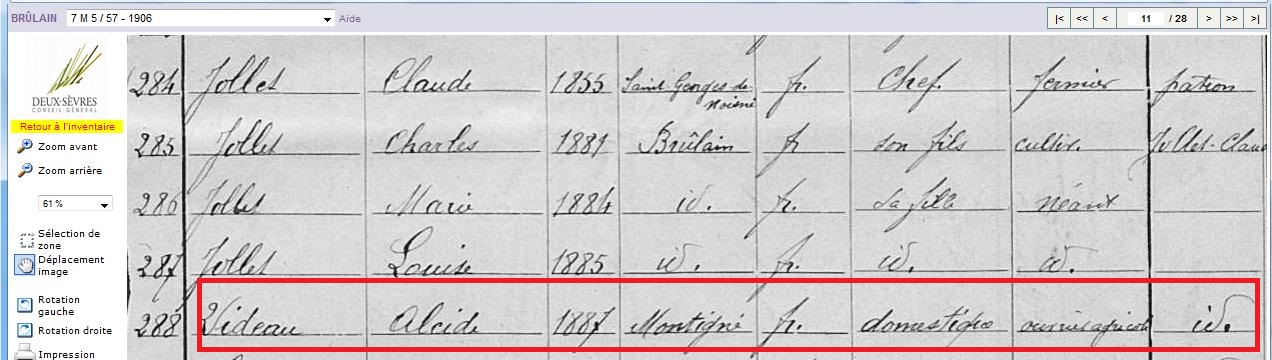 BRÛLAIN 7 M 5 / 57 - 1906 Aide |< << < 11 / 28 > >> >|
DEUX-SÈVRES
CONSEIL GÉNÉRAL
Retour à l'inventaire
Zoom avant
Zoom arrière
61 %
Sélection de
zone
Déplacement
image
Rotation
gauche
Rotation droite
Impression
284 Jollet Claude 1855 Saint-Georges-de-Noisné fr. Chef. fermier patron
285 Jollet Charles 1881 Brûlain fr son fils cultiv. Jollet-Claud
286 Jollet Marie 1884 id. fr. sa fille néant
287 Jollet Louise 1885 id. fr. id. id.
288 Videau Alcide 1887 Montigné fr. domestique ouvrier agricole id.